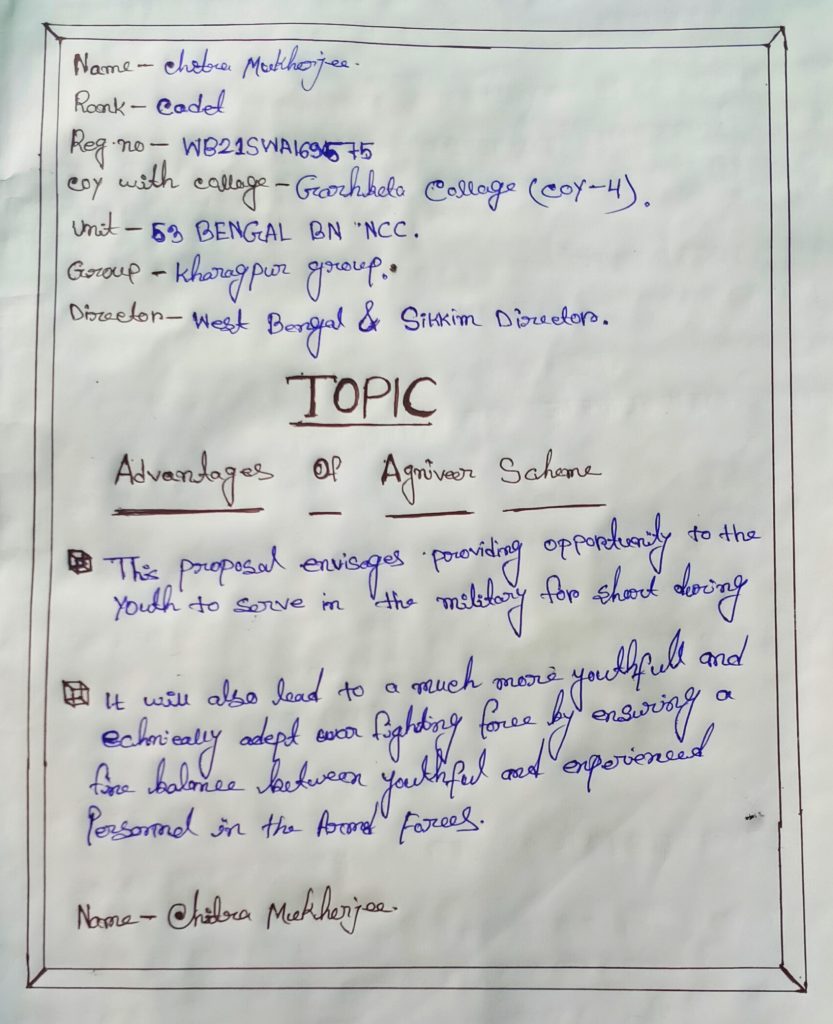 Name - Chitra Mukherjee.
Rank - Cadet
Reg. no - WB21SWA169575
coy with collage - Garhbeta Collage (COY-4).
Unit - 53 BENGAL BN NCC.
Group - Kharagpur group.
Director - West Bengal & Sikkim Director.
TOPIC
Advantages Of Agniveer Scheme
This proposal envisages providing opportunity to the
youth to serve in the military for short during
It will also lead to a much more youthfull and
echnically adept war fighting force by ensuring a
fine balance between youthful and experienced
Personnel in the Armd Forces.
Name - Chitra Mukherjee.